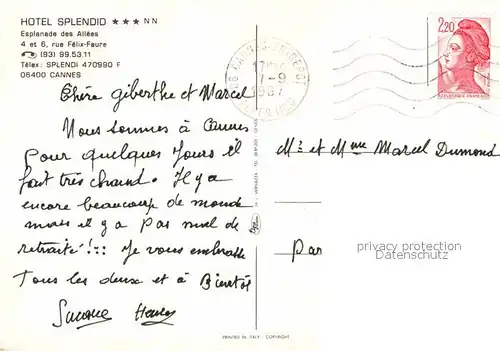 HOTEL SPLENDID ★★★ NN
Esplanade des Allées
4 et 6, rue Félix-Faure
☎ (93) 99.53.11
Télex: SPLENDI 470990 F
06400 CANNES
2,20
17-9
1987
Chère giberthe et Marcel
Nous sommes à Cannes
pour quelques jours il
fait très chaud. Il y a
encore beaucoup de monde
mais il y a pas mal de
retraité!!! Je vous embrasse
Tous les deux et à Bientôt
Henry
Mr et Mme Marcel Dumond
par
privacy protection
Datenschutz
PRINTED IN ITALY - COPYRIGHT